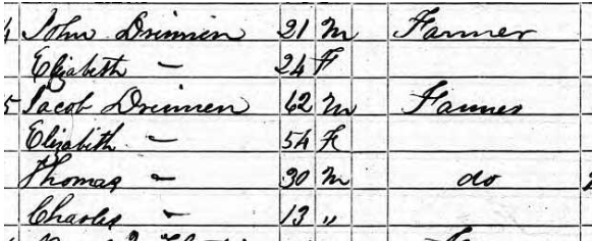 4 John Drinnen 21 M Farmer
Elizabeth — 24 F
5 Jacob Drinnen 62 M Farmer
Elizabeth — 54 F
Thomas — 30 M do
Charles — 13 "